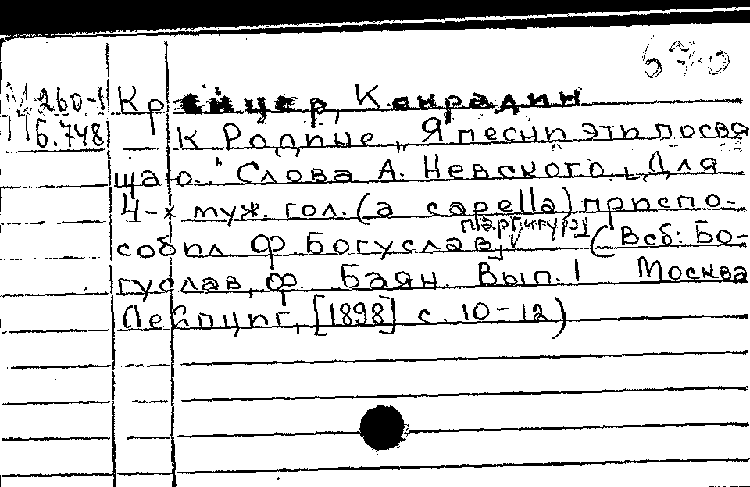 670
М 260-1 Крейцер, Конрадин
П 6.748 К Родине „Я песни эти посвя
щаю..." Слова А. Невского. Для
4-х муж. гол. (a capella) приспо-
собил Ф. Богуслав [партитура] (В сб: Бо-
гуслав, Ф Баян. Вып. 1 Москва
Лейпциг, [1898] с. 10-12)